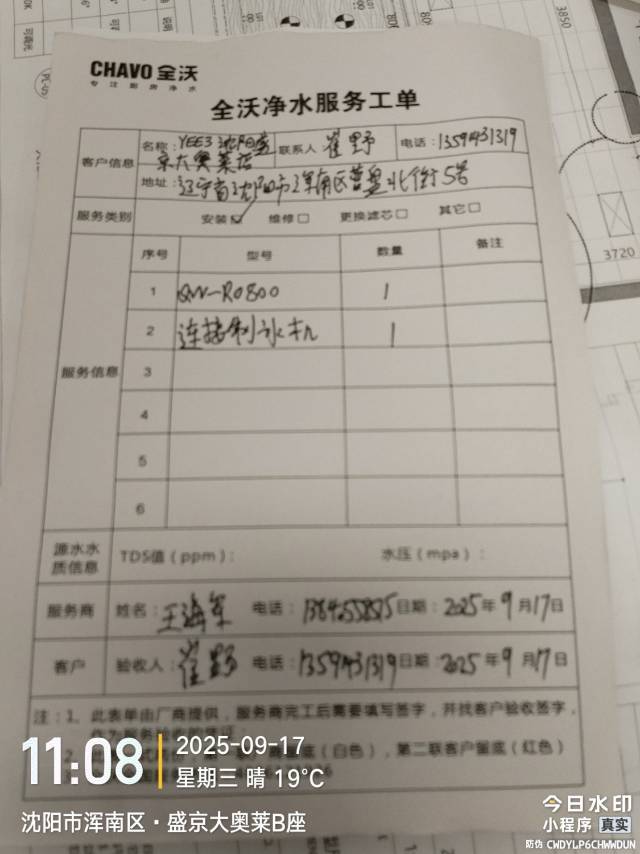 CHAVO 全沃
专注厨房净水
全沃净水服务工单
客户信息 名称：YEE3沈阳盛京大奥莱店 联系人 崔野 电话：
地址：辽宁省沈阳市浑南区营盘北街5号
服务类别 安装☑ 维修□ 更换滤芯□ 其它□
服务信息 序号 型号 数量 备注
1 QW-RO800 1
2 连接制冰机 1
3
4
5
6
源水水质信息 TDS值（ppm）： 水压（mpa）：
服务商 姓名：王海军 电话： 日期：2025年9月17日
客户 验收人：崔野 电话： 日期：2025年9月17日
注：1、此表单由厂商提供，服务商完工后需要填写签字，并找客户验收签字，
（白色），第二联客户留底（红色）
11:08 2025-09-17
星期三 晴 19℃
沈阳市浑南区·盛京大奥莱B座
今日水印
小程序 真实
防伪 CWDYLP6CHWWDUN
3850
3720